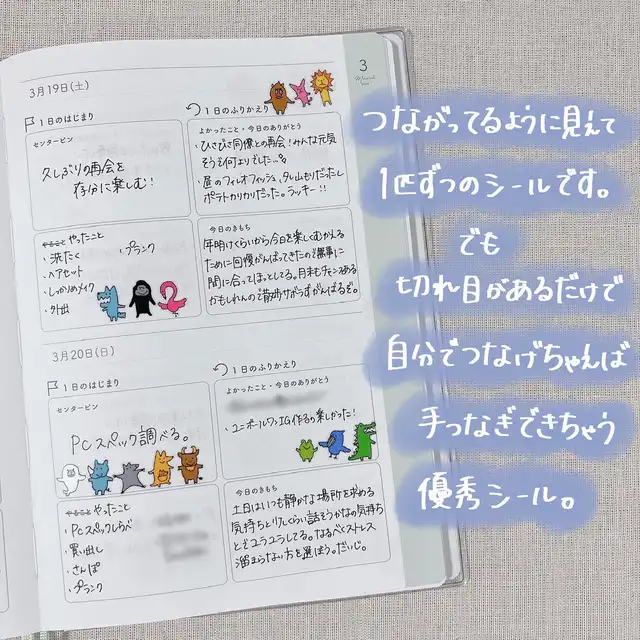 3月19日(土)
1日のはじまり
センターピン
久しぶりの再会を
存分に楽しむ!
やること やったこと
・洗たく
・ヘアセット
・しっかりめメイク
・外出
・プランク
1日のふりかえり
よかったこと・今日のありがとう
・ひさびさ同僚との再会!みんな元気
そうで何よりでした…
・昼のフィレオフィッシュ、タレ山もりだったし
ポテトカリカリだった。ラッキー!!
今日のきもち
年明けくらいから今日を楽しくむかえる
ために一回慢がんばってきたので無事に
間に合ってほっとしてる。月末もチャンスある
かもしれんので散歩サボらずがんばるぞ。
3月20日(日)
1日のはじまり
センターピン
PCスペック調べる。
やること やったこと
・PCスペックしらべ
・買い出し
・さんぽ
・プランク
1日のふりかえり
よかったこと・今日のありがとう
・ユニボールワンIG作るの楽しかった!
今日のきもち
土日はいつも静かな場所を求める
気持ちとりんくうらい話そうかなの気持ち
とでユラユラしてる。なるべくストレス
溜まらない方を選ぼう。だいじ。
3
つながってるように見えて
1匹ずつのシールです。
でも
切れ目があるだけで
自分でつなげちゃえば
手つなぎできちゃう
優秀シール。